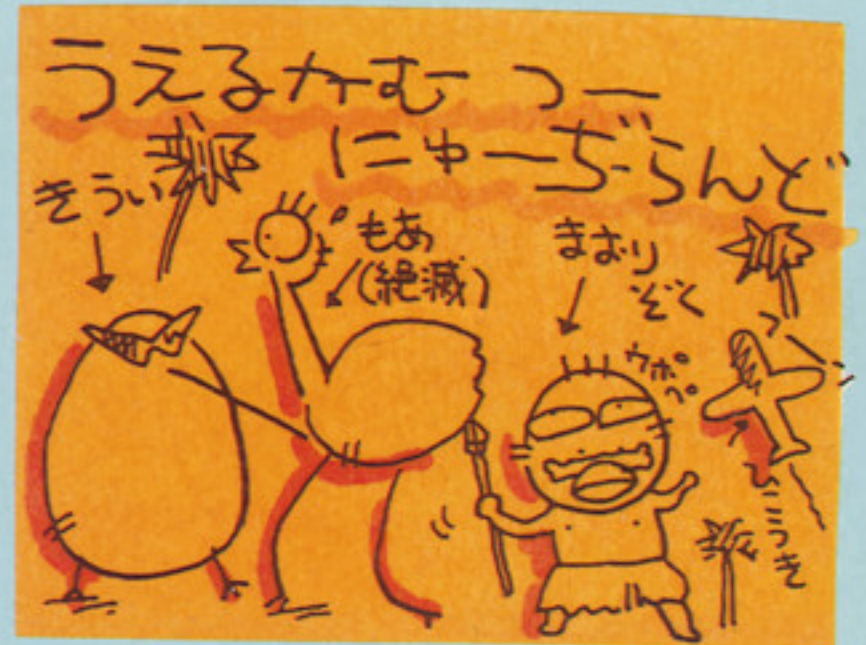 うえるかむ つー
にゅーぢーらんど
きうい
もあ
(絶滅)
まおり
ぞく
ウポポ
ひこうき